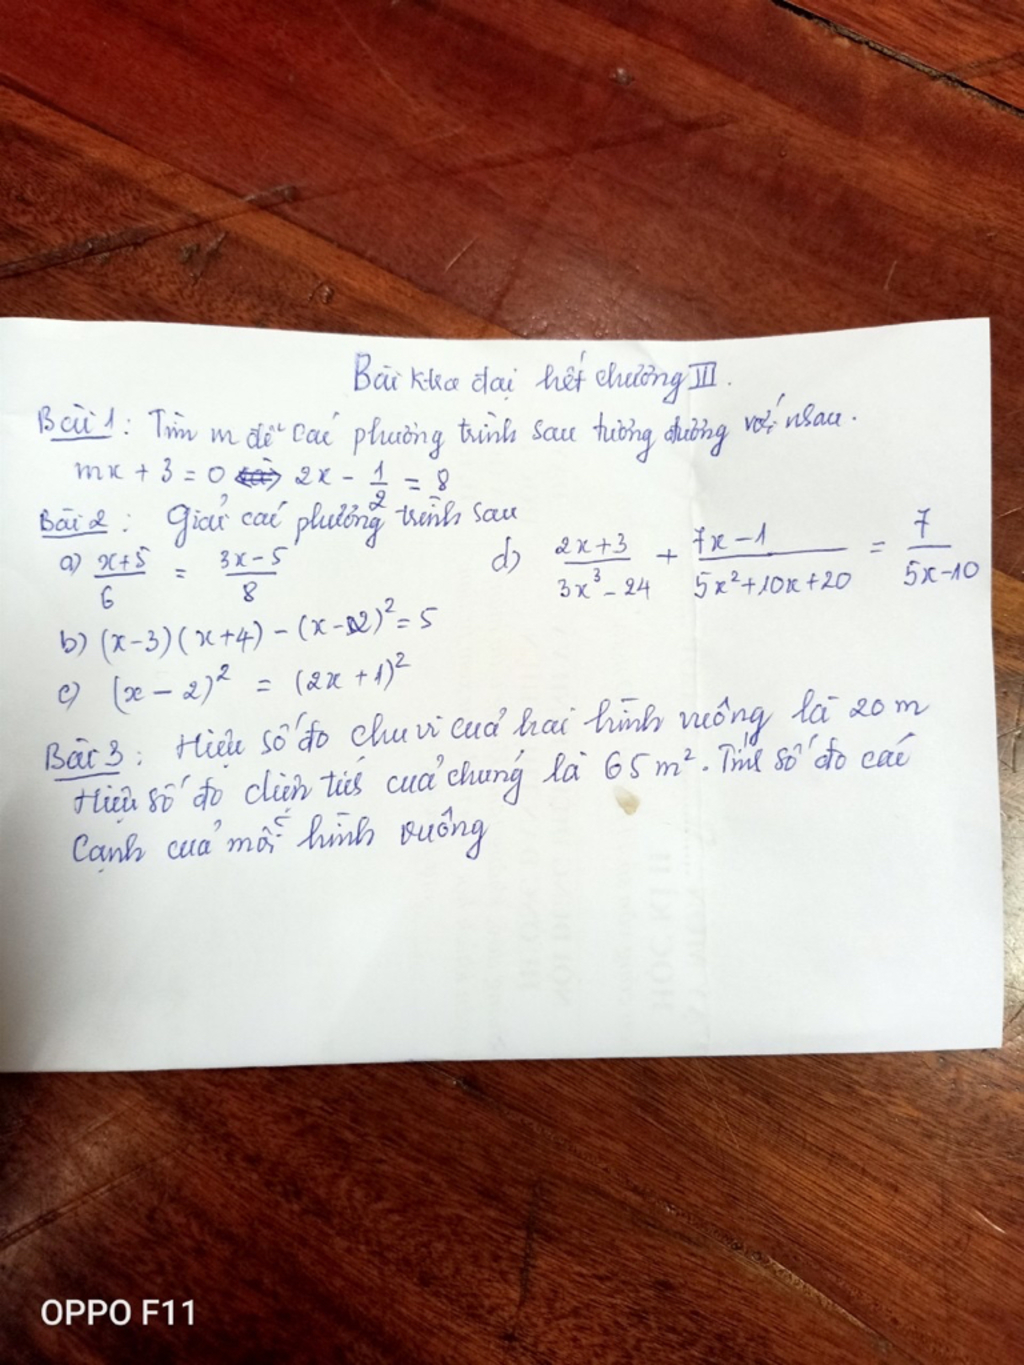 Bài kha đại hết chương III.
Bài 1: Tìm m để các phương trình sau tương đương với nhau.
mx + 3 = 0 và 2x - 1/2 = 8
Bài 2: Giải các phương trình sau
a) (x+5)/6 = (3x-5)/8
d) (2x+3)/(3x³-24) + (7x-1)/(5x²+10x+20) = 7/(5x-10)
b) (x-3)(x+4) - (x-2)² = 5
c) (x-2)² = (2x+1)²
Bài 3: Hiệu số đo chu vi của hai hình vuông là 20m
Hiệu số đo diện tích của chúng là 65m². Tính số đo các
Cạnh của mỗi hình vuông
OPPO F11